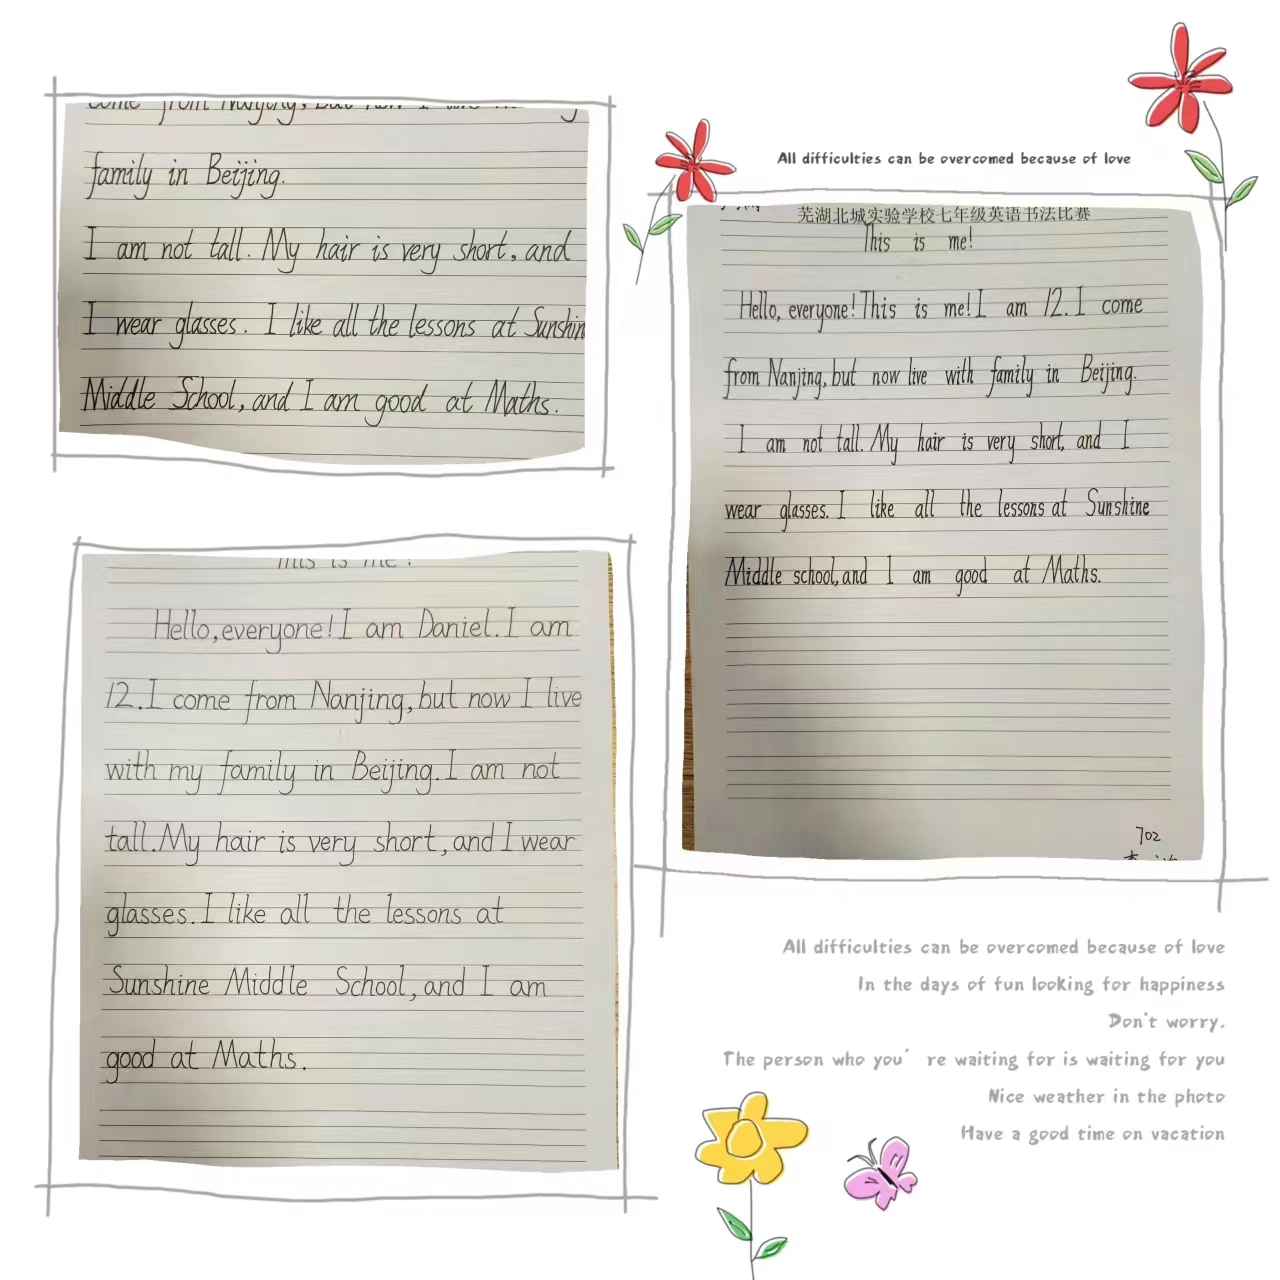 come from Nanjing, but now I live
family in Beijing.
I am not tall. My hair is very short, and
I wear glasses. I like all the lessons at Sunshin
Middle School, and I am good at Maths.
All difficulties can be overcomed because of love
芜湖北城实验学校七年级英语书法比赛
This is me!
Hello, everyone! This is me! I am 12. I come
from Nanjing, but now live with family in Beijing.
I am not tall. My hair is very short, and I
wear glasses. I like all the lessons at Sunshine
Middle school, and I am good at Maths.
702
This is me!
Hello, everyone! I am Daniel. I am
12. I come from Nanjing, but now I live
with my family in Beijing. I am not
tall. My hair is very short, and I wear
glasses. I like all the lessons at
Sunshine Middle School, and I am
good at Maths.
All difficulties can be overcomed because of love
In the days of fun looking for happiness
Don't worry.
The person who you're waiting for is waiting for you
Nice weather in the photo
Have a good time on vacation